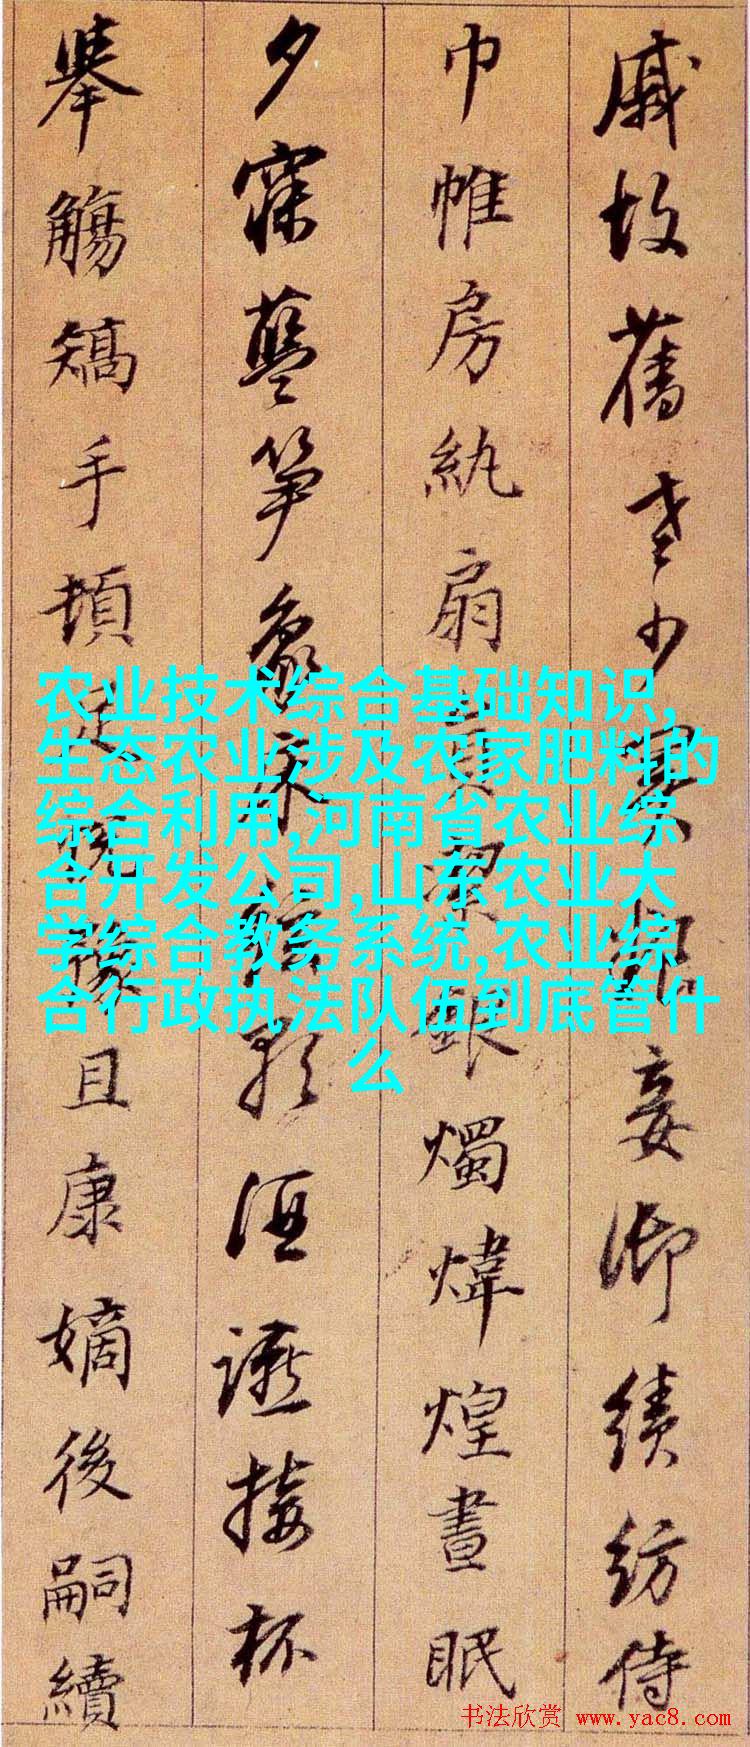 戚故舊老少異粮妾御績紡侍
巾帷房紈扇員潔銀燭煒煌晝眠
夕寐藍笋象床絃歌酒讌接杯
舉觴矯手頓足悅豫且康嫡後嗣續
农业技术综合基础知识,
生态农业涉及农家肥料的
综合利用,河南省农业综
合开发公司,山东农业大
学综合教务系统,农业综
合行政执法队伍到底管什
么
书法欣赏 www.yac8.com